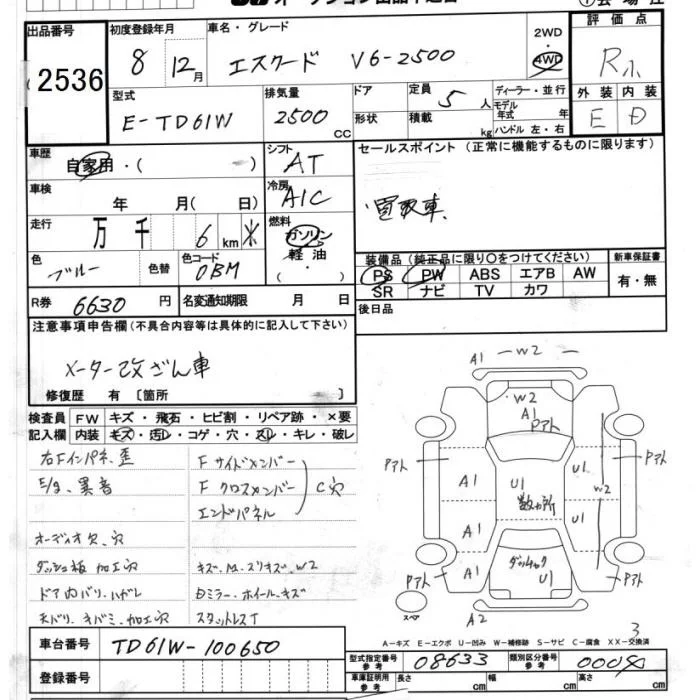 オークション出品申込書
出品番号 2536
初度登録年月 8 12月
車名・グレード エスクード V6-2500
2WD 4WD
評価点 R
外装 E 内装 D
型式 E-TD61W
排気量 2500 cc
ドア
形状
定員 5 人
積載 kg
ディーラー・並行
モデル年式 年
ハンドル 左・右
車歴 自家用・( )
シフト AT
セールスポイント (正常に機能するものに限ります)
買取車
車検 年 月( 日)
冷房 A/C
走行 万 千 6 km
燃料 ガソリン 軽油 ( ・ )
色 ブルー 色替
色コード 0BM
装備品 (純正品に限り〇をつけてください)
新車保証書 有・無
PS PW ABS エアB AW
SR ナビ TV カワ
R券 6630 円
名変通知期限 月 日
後日品
注意事項申告欄 (不具合内容等は具体的に記入して下さい)
メーター改ざん車
修復歴 有 [箇所 ]
検査員記入欄
FW キズ・飛石・ヒビ割・リペア跡・×要
内装 キズ・汚レ・コゲ・穴・スレ・キレ・破レ
右Fインパネ歪
E/g異音
オーディオ欠、穴
ダッシュ板加工穴
ドア内バリハガレ
天バリキバミ、加工穴
Fサイドメンバー
Fクロスメンバー
エンドパネル
C穴
キズ、M、スリキズ、W2
Dミラー・ホイールキズ
スタットレスT
A1 W2
W2
A1
Pアト
Pアト
Pアト
A1
U1
U1
W2
数ヵ所
A1
U1
U1
A1
ダッシャク
Pアト
Pアト
スペア
A2
3
A-キズ E-エクボ U-凹み W-補修跡 S-サビ C-腐食 XX-交換済
車台番号 TD61W-100650
登録番号
型式指定番号 参考 08633
類別区分番号 参考
車庫証明用 参考 長さ cm 幅 cm 高さ cm